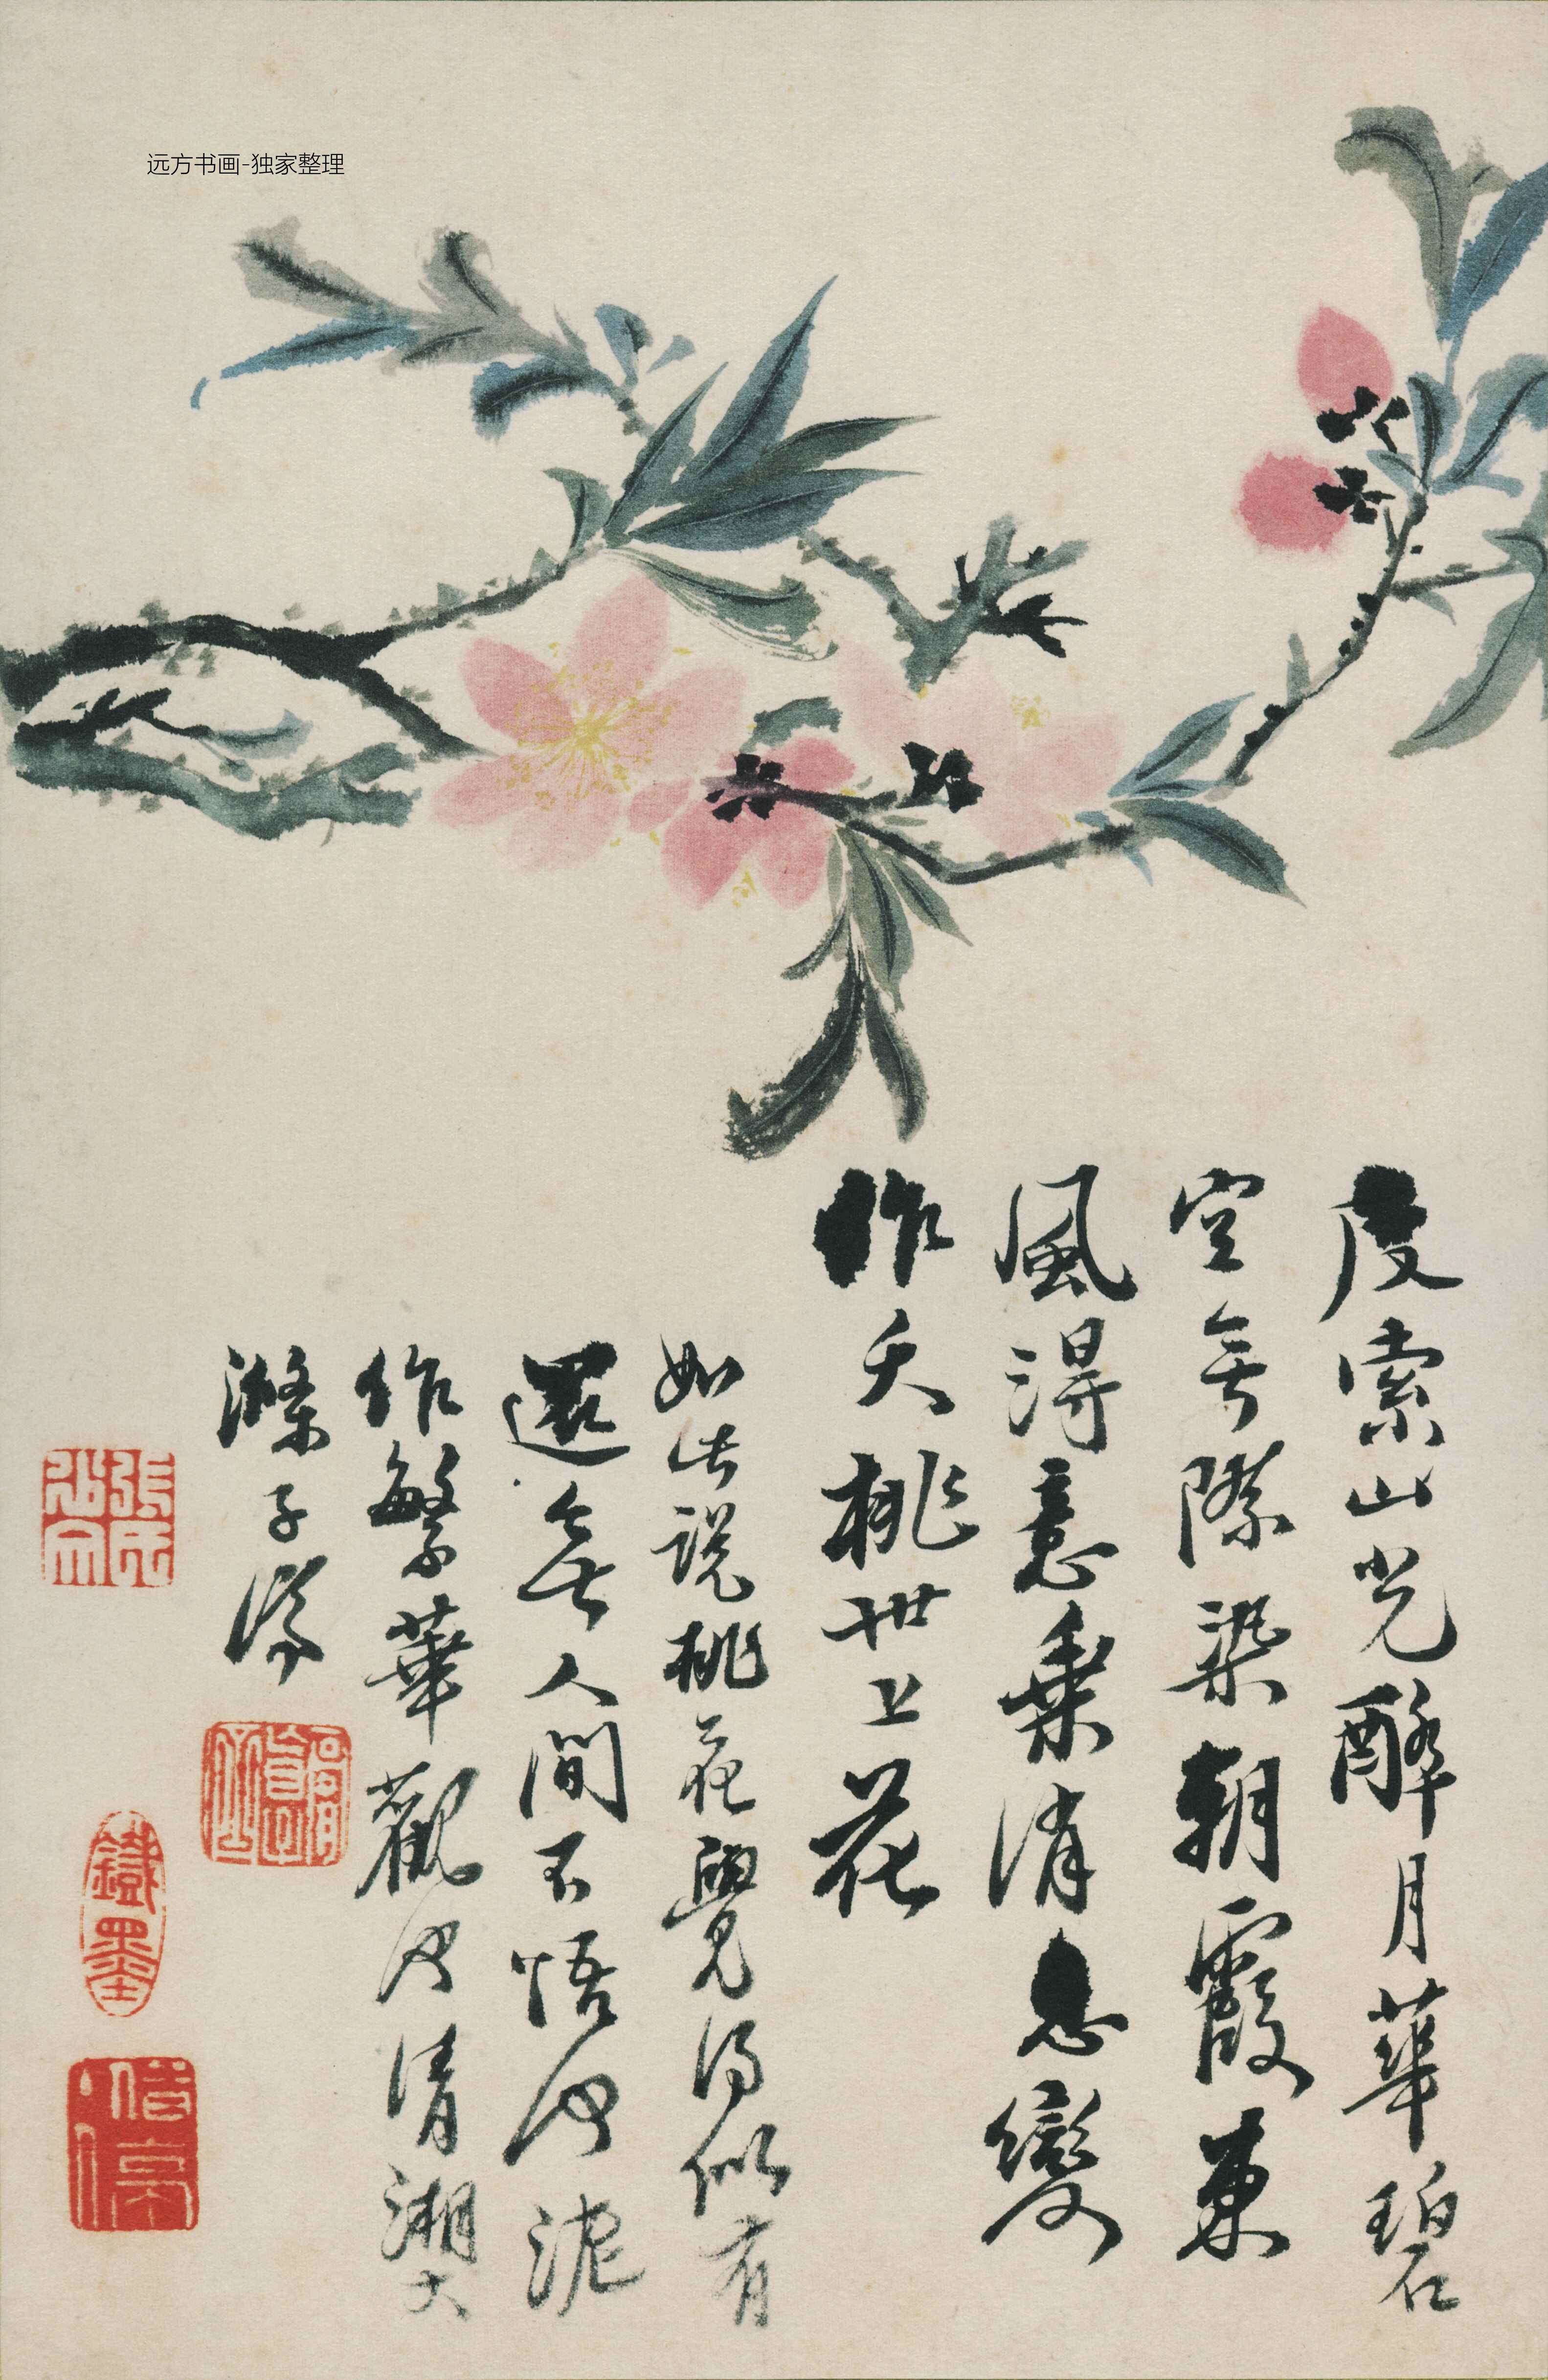 远方书画-独家整理
度索山光醉月華碧
空無際染朝霞東
風得意乘消息變
作夭桃世上花
如此說桃花覺得似有
還無人間不悟何泥
作繁華觀何清湘大
滌子濟
鐵墨